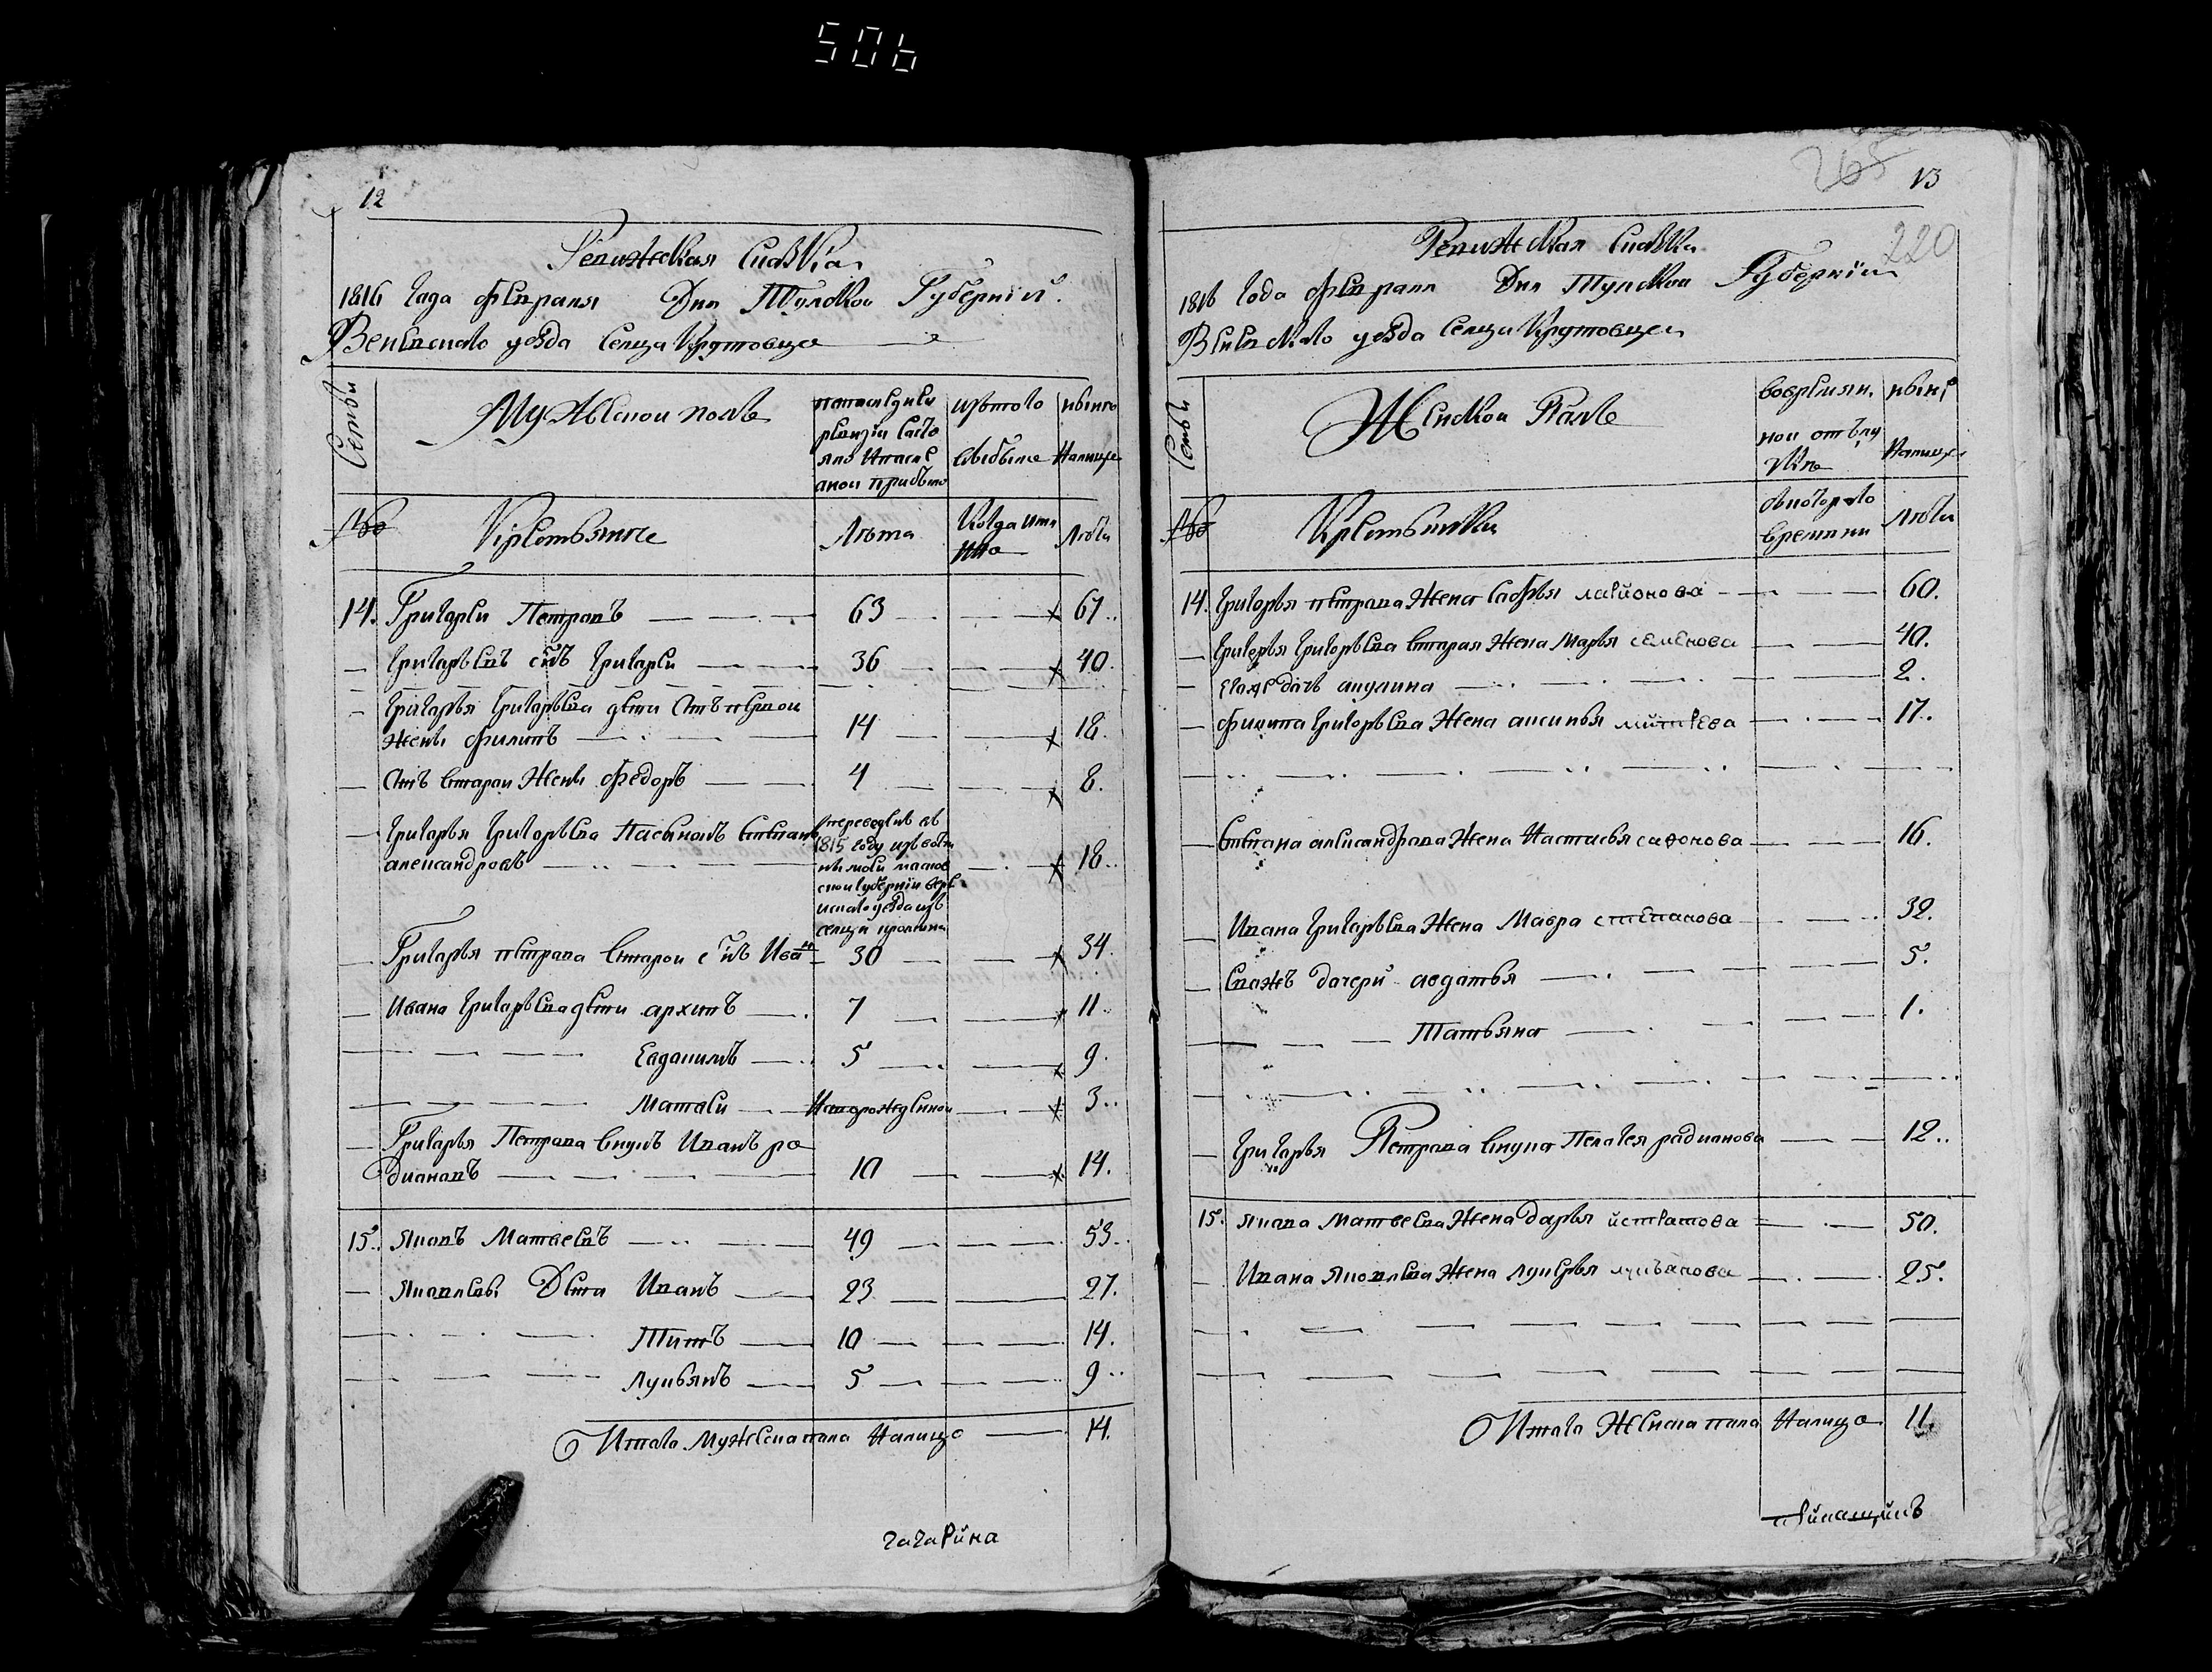 506
12
Ревижская Скаска
1816 Года февраля Дня Тулской Губернии
Веневского уезда Селца Крутовца
Семьи
Мужескои полъ
по последнеи
ревизии состо
ялъ и после
оной прибыло
изътого
Выбыло
ныне
Налице
№
Крестьяне
Лѣта
Когда имя
но
Лѣты
14. Григореи Петровъ 63 67.
Григорьевъ сынъ Григореи 36 40.
Григорья Григорьева дети Отъ первои
жены филипъ 14 18.
Отъ второи жены федоръ 4 8.
Григорья Григорьева Пасынокъ Степанъ
александровъ 18.
переведенъ въ
1815 году изъ вот
чины моеи масков
скои губернии верѣ
искаго уезда изъ
селца
Григорья петрова второи сынъ Иванъ 30 34.
Ивана Григорьева дети архипъ 7 11.
Евдокимъ 5 9.
Матвеи Новорожденнои 3.
Григорья Петрова внукъ Иванъ ро
дионовъ 10 14.
15. Яковъ Матвеевъ 49 53.
Яковлевы Дети Иванъ 23 27.
Титъ 10 14.
Лукьянъ 5 9.
Итого мужеска пола Налицо 14.
гагарина
265
13
220
Ревижская Скаска
1816 года февраля Дня Тулской Губернии
Веневского уезда Селца Крутовца
Семьи
Женской Полъ
вовремян.
нои отълу
чке
ныне
Налице
№
Крестьянки
съкоторого
времяни
Лѣты
14. Григорья петрова Жена Софья ларионова 60.
Григорья Григорьева вторая Жена Марья семенова 40.
Егоже дочь акулина 2.
филипа Григорьева Жена аксинья митрева 17.
Степана александрова Жена Настасья сафонова 16.
Ивана Григорьева Жена Мавра степанова 32.
Егожъ дочери авдотья 5.
Татьяна 1.
Григорья Петрова внука Пелагея радионова 12.
15. якова Матвеева Жена дарья истратова 50.
Ивана Яковлева Жена лукерья лукьянова 25.
Итого Женска пола Налицо 11.